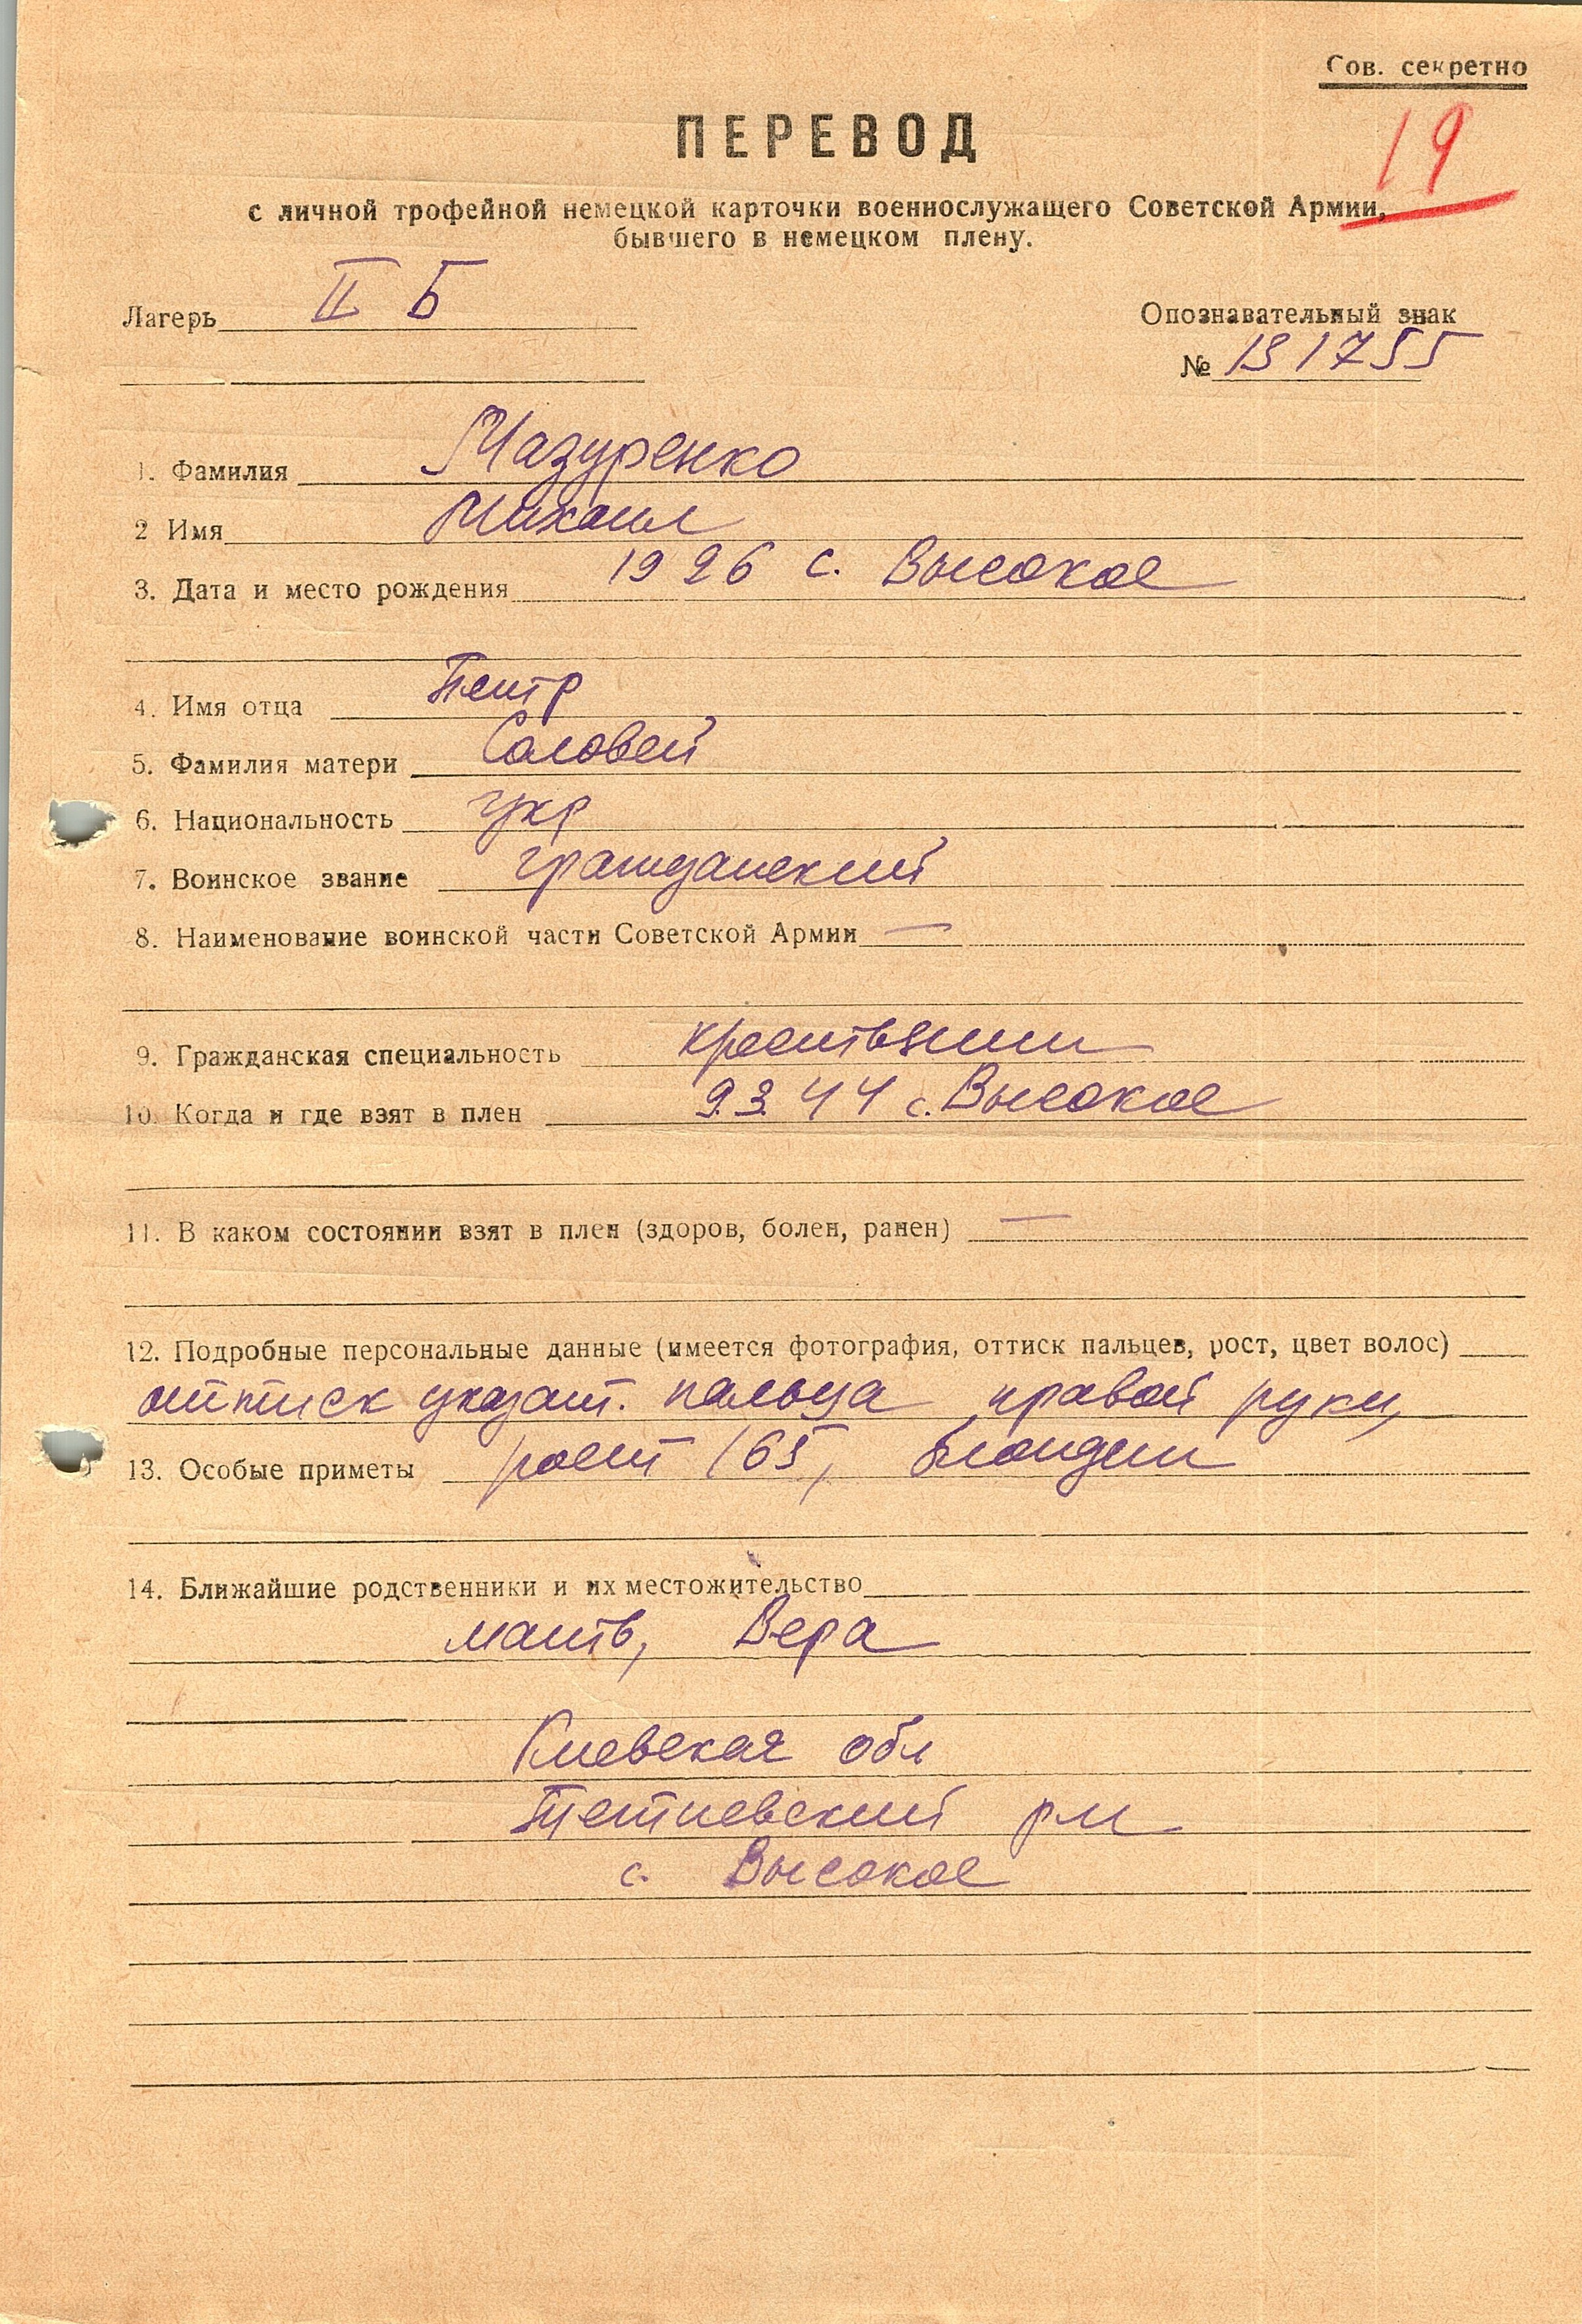 Сов. секретно
19
ПЕРЕВОД
с личной трофейной немецкой карточки военнослужащего Советской Армии,
бывшего в немецком плену.
Лагерь II Б
Опознавательный знак
№ 131755
1. Фамилия Мазуренко
2 Имя Михаил
3. Дата и место рождения 1926 с. Высокое
4. Имя отца Петр
5. Фамилия матери Соловей
6. Национальность укр
7. Воинское звание гражданский
8. Наименование воинской части Советской Армии —
9. Гражданская специальность крестьянин
10. Когда и где взят в плен 9.3.44 с. Высокое
11. В каком состоянии взят в плен (здоров, болен, ранен) —
12. Подробные персональные данные (имеется фотография, оттиск пальцев, рост, цвет волос)
оттиск указат. пальца правой руки,
13. Особые приметы рост 165, блондин
14. Ближайшие родственники и их местожительство
мать, Вера
Киевская обл
Тетиевский рн
с. Высокое